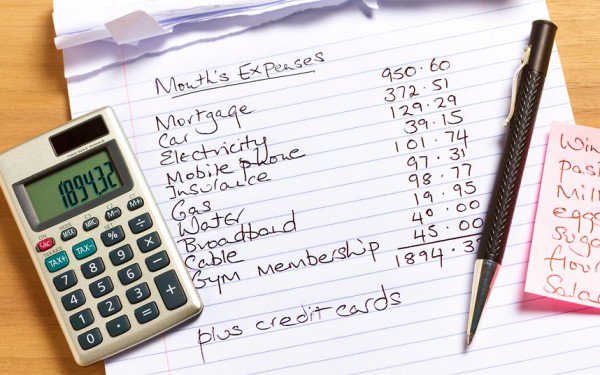 Month's Expenses
Mortgage 950.60
Car 372.51
Electricity 129.29
Mobile phone 39.15
Insurance 101.74
Gas 97.31
Water 98.77
Broadband 19.95
Cable 40.00
Gym Membership 45.00
1894.3
plus credit cards
1894.32
MRC M- M+
TAX+ TAX- % ÷
7 8 9 ×
4 5 6 -
1 2 3 +
0 . =
Win
past
Mil
eggs
suga
floo
Sala